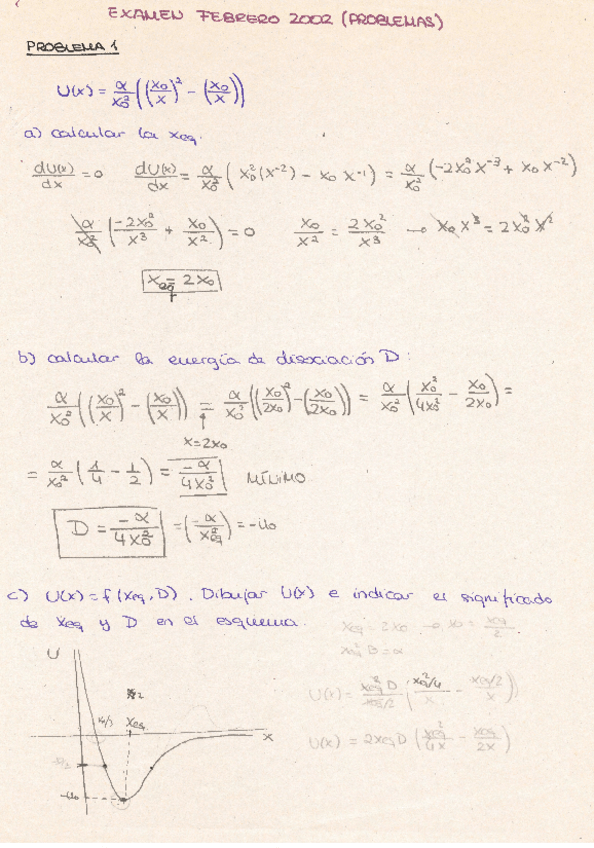 EXAMEN FEBRERO 2002 (PROBLEMAS)
PROBLEMA 1
U(x) = α/x₀² ((x₀/x)² - (x₀/x))
a) calcular la xeq.
dU(x)/dx = 0   dU(x)/dx = α/x₀² (x₀²(x⁻²) - x₀ x⁻¹) = α/x₀² (-2x₀² x⁻³ + x₀ x⁻²)
α/x₀² (-2x₀²/x³ + x₀/x²) = 0   x₀/x² = 2x₀²/x³ → x₀ x³ = 2x₀² x²
xeq = 2x₀
b) calcular la energía de disociación D:
α/x₀² ((x₀/x)² - (x₀/x)) = α/x₀² ((x₀/2x₀)² - (x₀/2x₀)) = α/x₀² (x₀²/4x₀² - x₀/2x₀) =
↑
x = 2x₀
= α/x₀² (1/4 - 1/2) = -α/4x₀² MÍNIMO
D = -α/4x₀² = (-α/x²eq) = -U₀
c) U(x) = f(xeq, D). Dibujar U(x) e indicar el significado
de xeq y D en el esquema.
xeq = 2x₀ → x₀ = xeq/2
x²eq D = α
U
Xeq.
x
-U₀
U(x) = x²eq D / xeq/2 (x²eq/4 / x - xeq/2 / x)
U(x) = 2xeq D (x²eq/4x - xeq/2x)